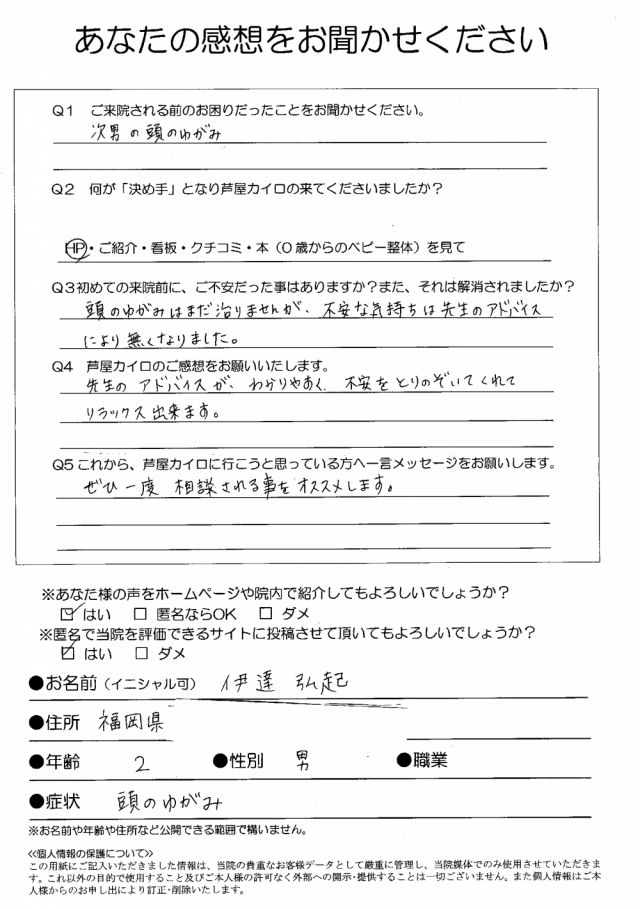 あなたの感想をお聞かせください
Q1 ご来院される前のお困りだったことをお聞かせください。
次男の頭のゆがみ
Q2 何が「決め手」となり芦屋カイロの来てくださいましたか？
HP・ご紹介・看板・クチコミ・本（０歳からのベビー整体）を見て
Q3初めての来院前に、ご不安だった事はありますか？また、それは解消されましたか？
頭のゆがみはまだ治りませんが、不安な気持ちは先生のアドバイス
により無くなりました。
Q4 芦屋カイロのご感想をお願いいたします。
先生のアドバイスが、わかりやすく、不安をとりのぞいてくれて
リラックス出来ます。
Q5これから、芦屋カイロに行こうと思っている方へ一言メッセージをお願いします。
ぜひ一度 相談される事をオススメします。
※あなた様の声をホームページや院内で紹介してもよろしいでしょうか？
☑ はい □ 匿名ならOK □ ダメ
※匿名で当院を評価できるサイトに投稿させて頂いてもよろしいでしょうか？
☑ はい □ ダメ
●お名前（イニシャル可） 伊達 弘起
●住所 福岡県
●年齢 2 ●性別 男 ●職業
●症状 頭のゆがみ
※お名前や年齢や住所など公開できる範囲で構いません。
≪個人情報の保護について≫
この用紙にご記入いただきました情報は、当院の貴重なお客様データとして厳重に管理し、当院媒体でのみ使用させていただきま
す。これ以外の目的で使用すること及びご本人様の許可なく外部への開示・提供することは一切ございません。また個人情報はご本
人様からのお申し出により訂正・削除いたします。